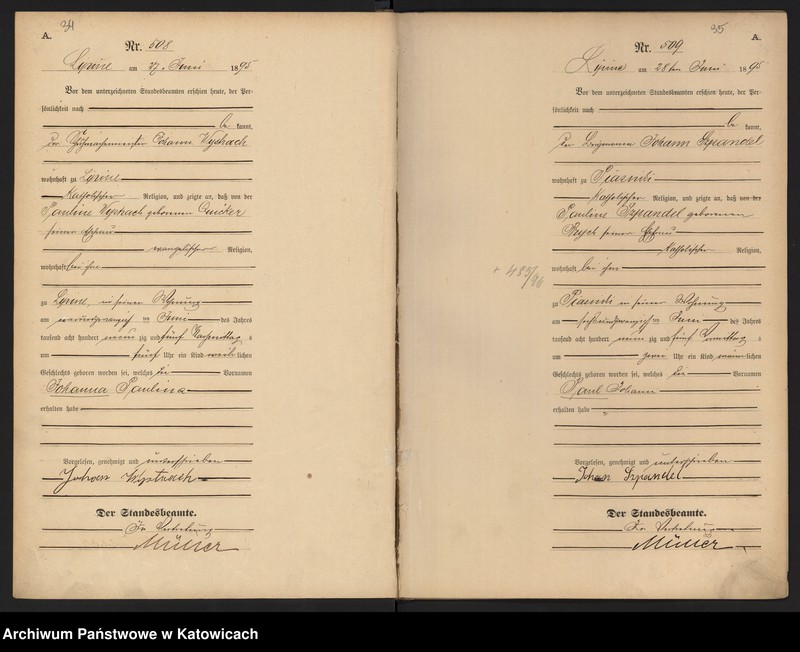 34
A.
Nr. 508
Lipine am 27. Juni 1895
Vor dem unterzeichneten Standesbeamten erschien heute, der Per-
sönlichkeit nach
be kannt,
der Johann
wohnhaft zu Lipine
katholischer Religion, und zeigte an, daß von der
Pauline geborenen
seiner Ehefrau
evangelischer Religion,
wohnhaft bei ihm
zu Lipine, in seiner Wohnung
am ten Juni des Jahres
tausend acht hundert neun zig und fünf Nachmittag s
um fünf Uhr ein Kind weib lichen
Geschlechts geboren worden sei, welches die Vornamen
Johanna Paulina
erhalten habe
Vorgelesen, genehmigt und unterschrieben
Johann
Der Standesbeamte.
In Vertretung
Müller
35
A.
Nr. 509
Lipine am 28ten Juni 1895
Vor dem unterzeichneten Standesbeamten erschien heute, der Per-
sönlichkeit nach
be kannt,
der Johann Szpandel
wohnhaft zu Piasniki
katholischer Religion, und zeigte an, daß von der
Pauline Szpandel geborenen
seiner Ehefrau
katholischer Religion,
wohnhaft bei ihm
+ 485/96
zu Piasniki in seiner Wohnung
am sechsundzwanzigsten Juni des Jahres
tausend acht hundert neun zig und fünf
um Uhr ein Kind männ lichen
Geschlechts geboren worden sei, welches die Vornamen
Paul Johann
erhalten habe
Vorgelesen, genehmigt und unterschrieben
Johann Szpandel
Der Standesbeamte.
In Vertretung
Müller
Archiwum Państwowe w Katowicach